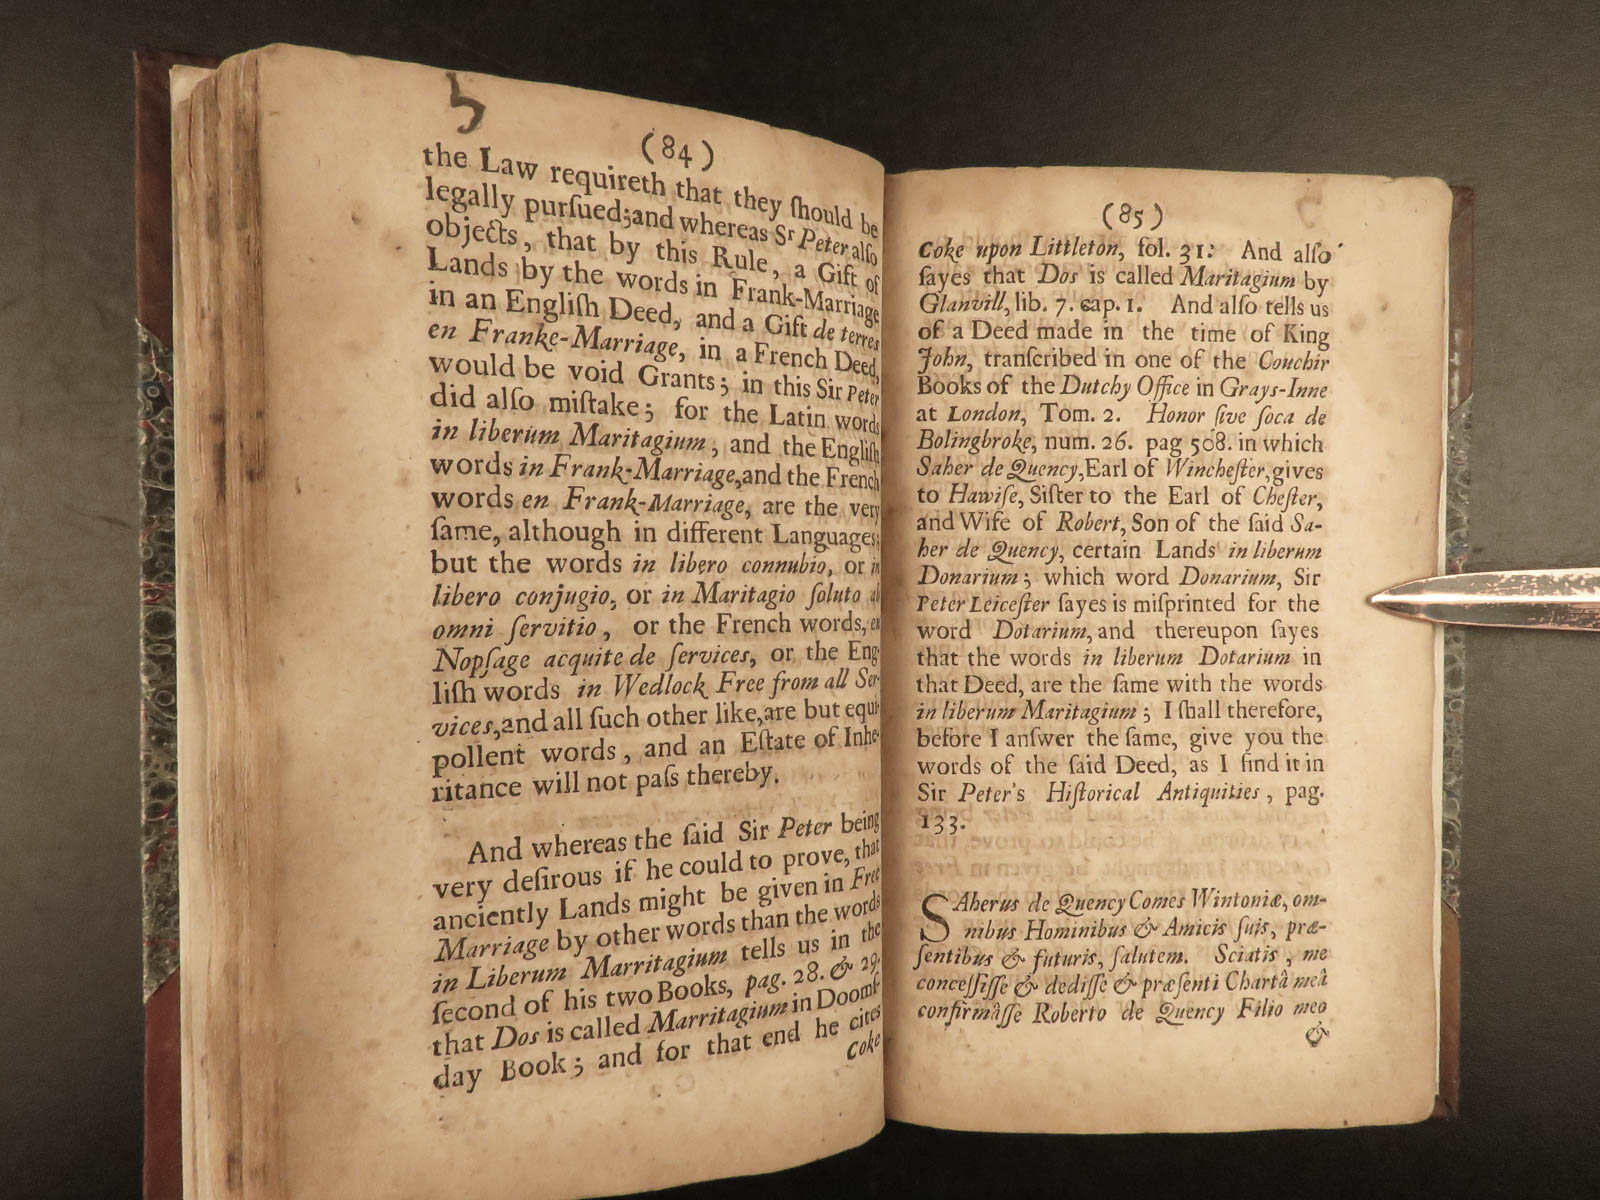 (84)
the Law requireth that they ſhould be
legally purſued; and whereas Sr Peter alſo
objects, that by this Rule, a Gift of
Lands by the words in Frank-Marriage
in an Engliſh Deed, and a Gift de terres
en Franke-Marriage, in a French Deed,
would be void Grants; in this Sir Peter
did alſo miſtake; for the Latin words
in liberum Maritagium, and the Engliſh
words in Frank-Marriage, and the French
words en Frank-Marriage, are the very
ſame, although in different Languages;
but the words in libero connubio, or in
libero conjugio, or in Maritagio ſoluto ab
omni ſervitio, or the French words, en
Nopſage acquite de ſervices, or the Eng-
liſh words in Wedlock Free from all Ser-
vices, and all ſuch other like, are but equi-
pollent words, and an Eſtate of Inhe-
ritance will not paſs thereby.
And whereas the ſaid Sir Peter being
very deſirous if he could to prove, that
anciently Lands might be given in Free
Marriage by other words than the words
in Liberum Marritagium tells us in the
ſecond of his two Books, pag. 28. & 29.
that Dos is called Marritagium in Doomſ-
day Book; and for that end he cites
Coke
(85)
Coke upon Littleton, fol. 31: And alſo
ſayes that Dos is called Maritagium by
Glanvill, lib. 7. cap. 1. And alſo tells us
of a Deed made in the time of King
John, tranſcribed in one of the Couchir
Books of the Dutchy Office in Grays-Inne
at London, Tom. 2. Honor ſive ſoca de
Bolingbroke, num. 26. pag 508. in which
Saher de Quency, Earl of Wincheſter, gives
to Hawiſe, Siſter to the Earl of Cheſter,
and Wife of Robert, Son of the ſaid Sa-
her de Quency, certain Lands in liberum
Donarium; which word Donarium, Sir
Peter Leiceſter ſayes is miſprinted for the
word Dotarium, and thereupon ſayes
that the words in liberum Dotarium in
that Deed, are the ſame with the words
in liberum Maritagium; I ſhall therefore,
before I anſwer the ſame, give you the
words of the ſaid Deed, as I find it in
Sir Peter's Hiſtorical Antiquities, pag.
133.
SAherus de Quency Comes Wintoniæ, om-
nibus Hominibus & Amicis ſuis, præ-
ſentibus & futuris, ſalutem. Sciatis, me
conceſſiſſe & dediſſe & præſenti Chartâ meâ
confirmâſſe Roberto de Quency Filio meo
&